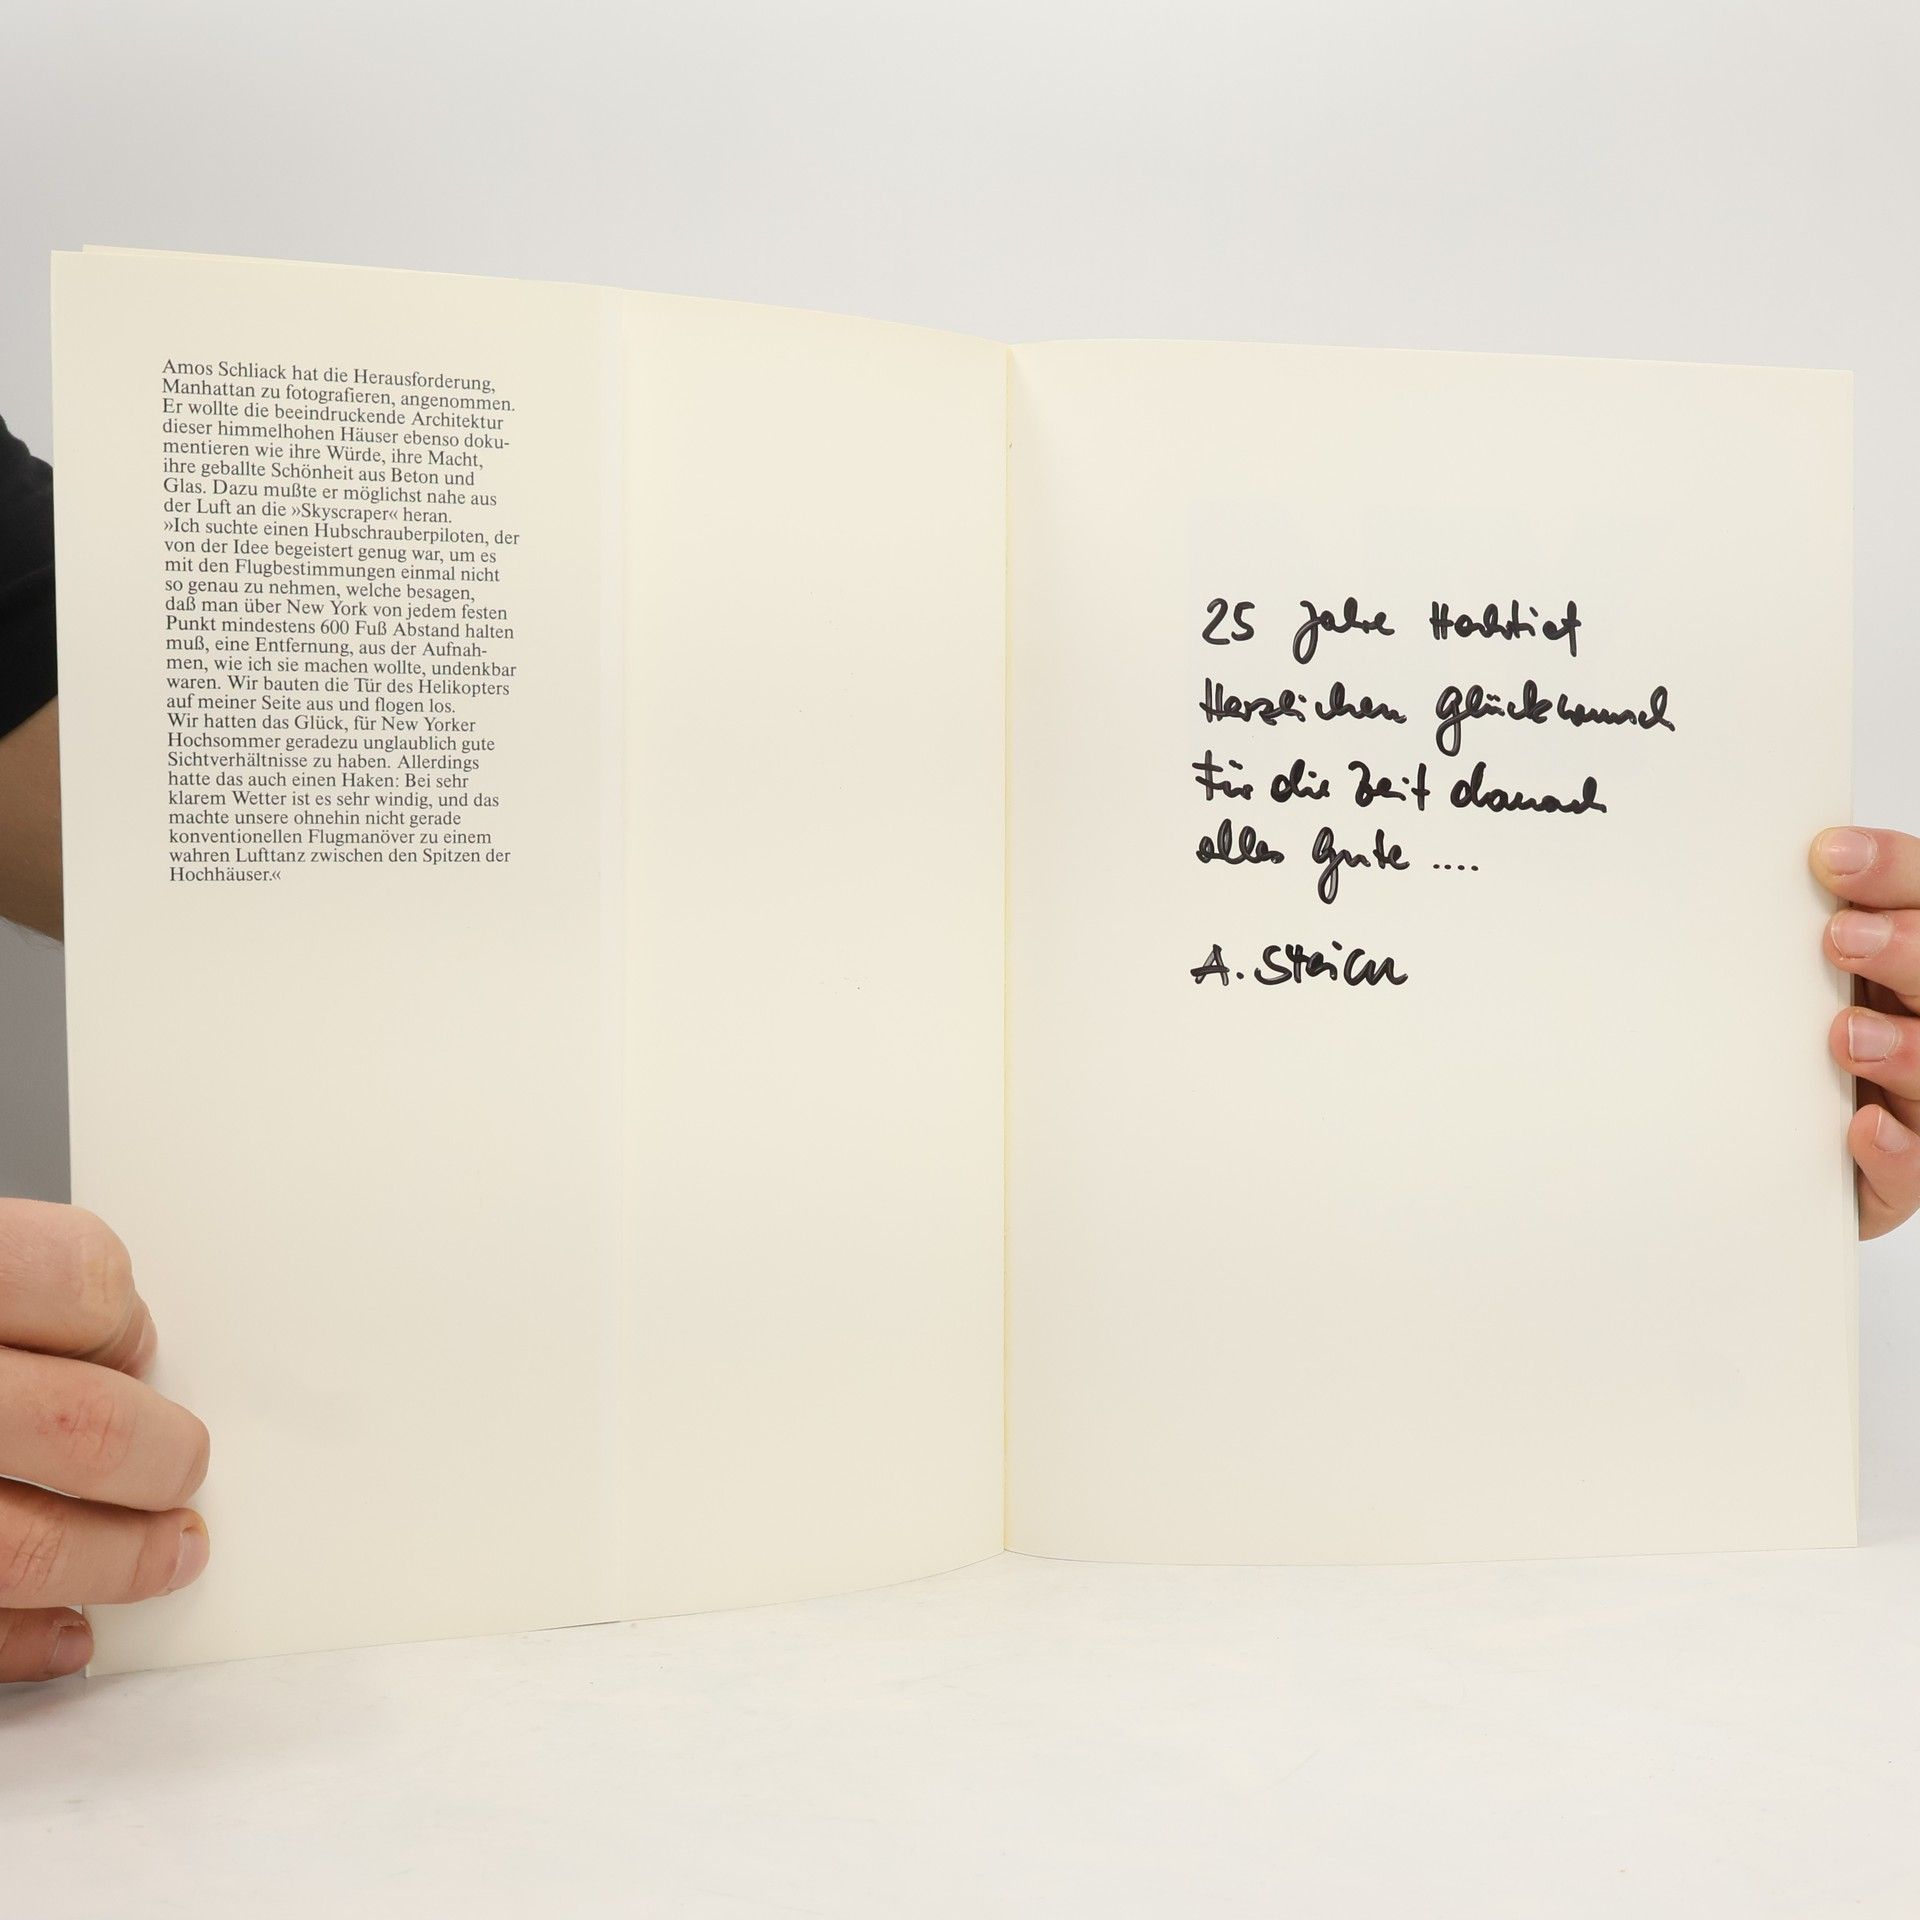 Amos Schliack hat die Herausforderung,
Manhattan zu fotografieren, angenommen.
Er wollte die beeindruckende Architektur
dieser himmelhohen Häuser ebenso doku-
mentieren wie ihre Würde, ihre Macht,
ihre geballte Schönheit aus Beton und
Glas. Dazu mußte er möglichst nahe aus
der Luft an die »Skyscraper« heran.
»Ich suchte einen Hubschrauberpiloten, der
von der Idee begeistert genug war, um es
mit den Flugbestimmungen einmal nicht
so genau zu nehmen, welche besagen,
daß man über New York von jedem festen
Punkt mindestens 600 Fuß Abstand halten
muß, eine Entfernung, aus der Aufnah-
men, wie ich sie machen wollte, undenkbar
waren. Wir bauten die Tür des Helikopters
auf meiner Seite aus und flogen los.
Wir hatten das Glück, für New Yorker
Hochsommer geradezu unglaublich gute
Sichtverhältnisse zu haben. Allerdings
hatte das auch einen Haken: Bei sehr
klarem Wetter ist es sehr windig, und das
machte unsere ohnehin nicht gerade
konventionellen Flugmanöver zu einem
wahren Lufttanz zwischen den Spitzen der
Hochhäuser.«
25 Jahre Hochtief
Herzlichen Glückwunsch
Für die Zeit danach
alles Gute ....
A.